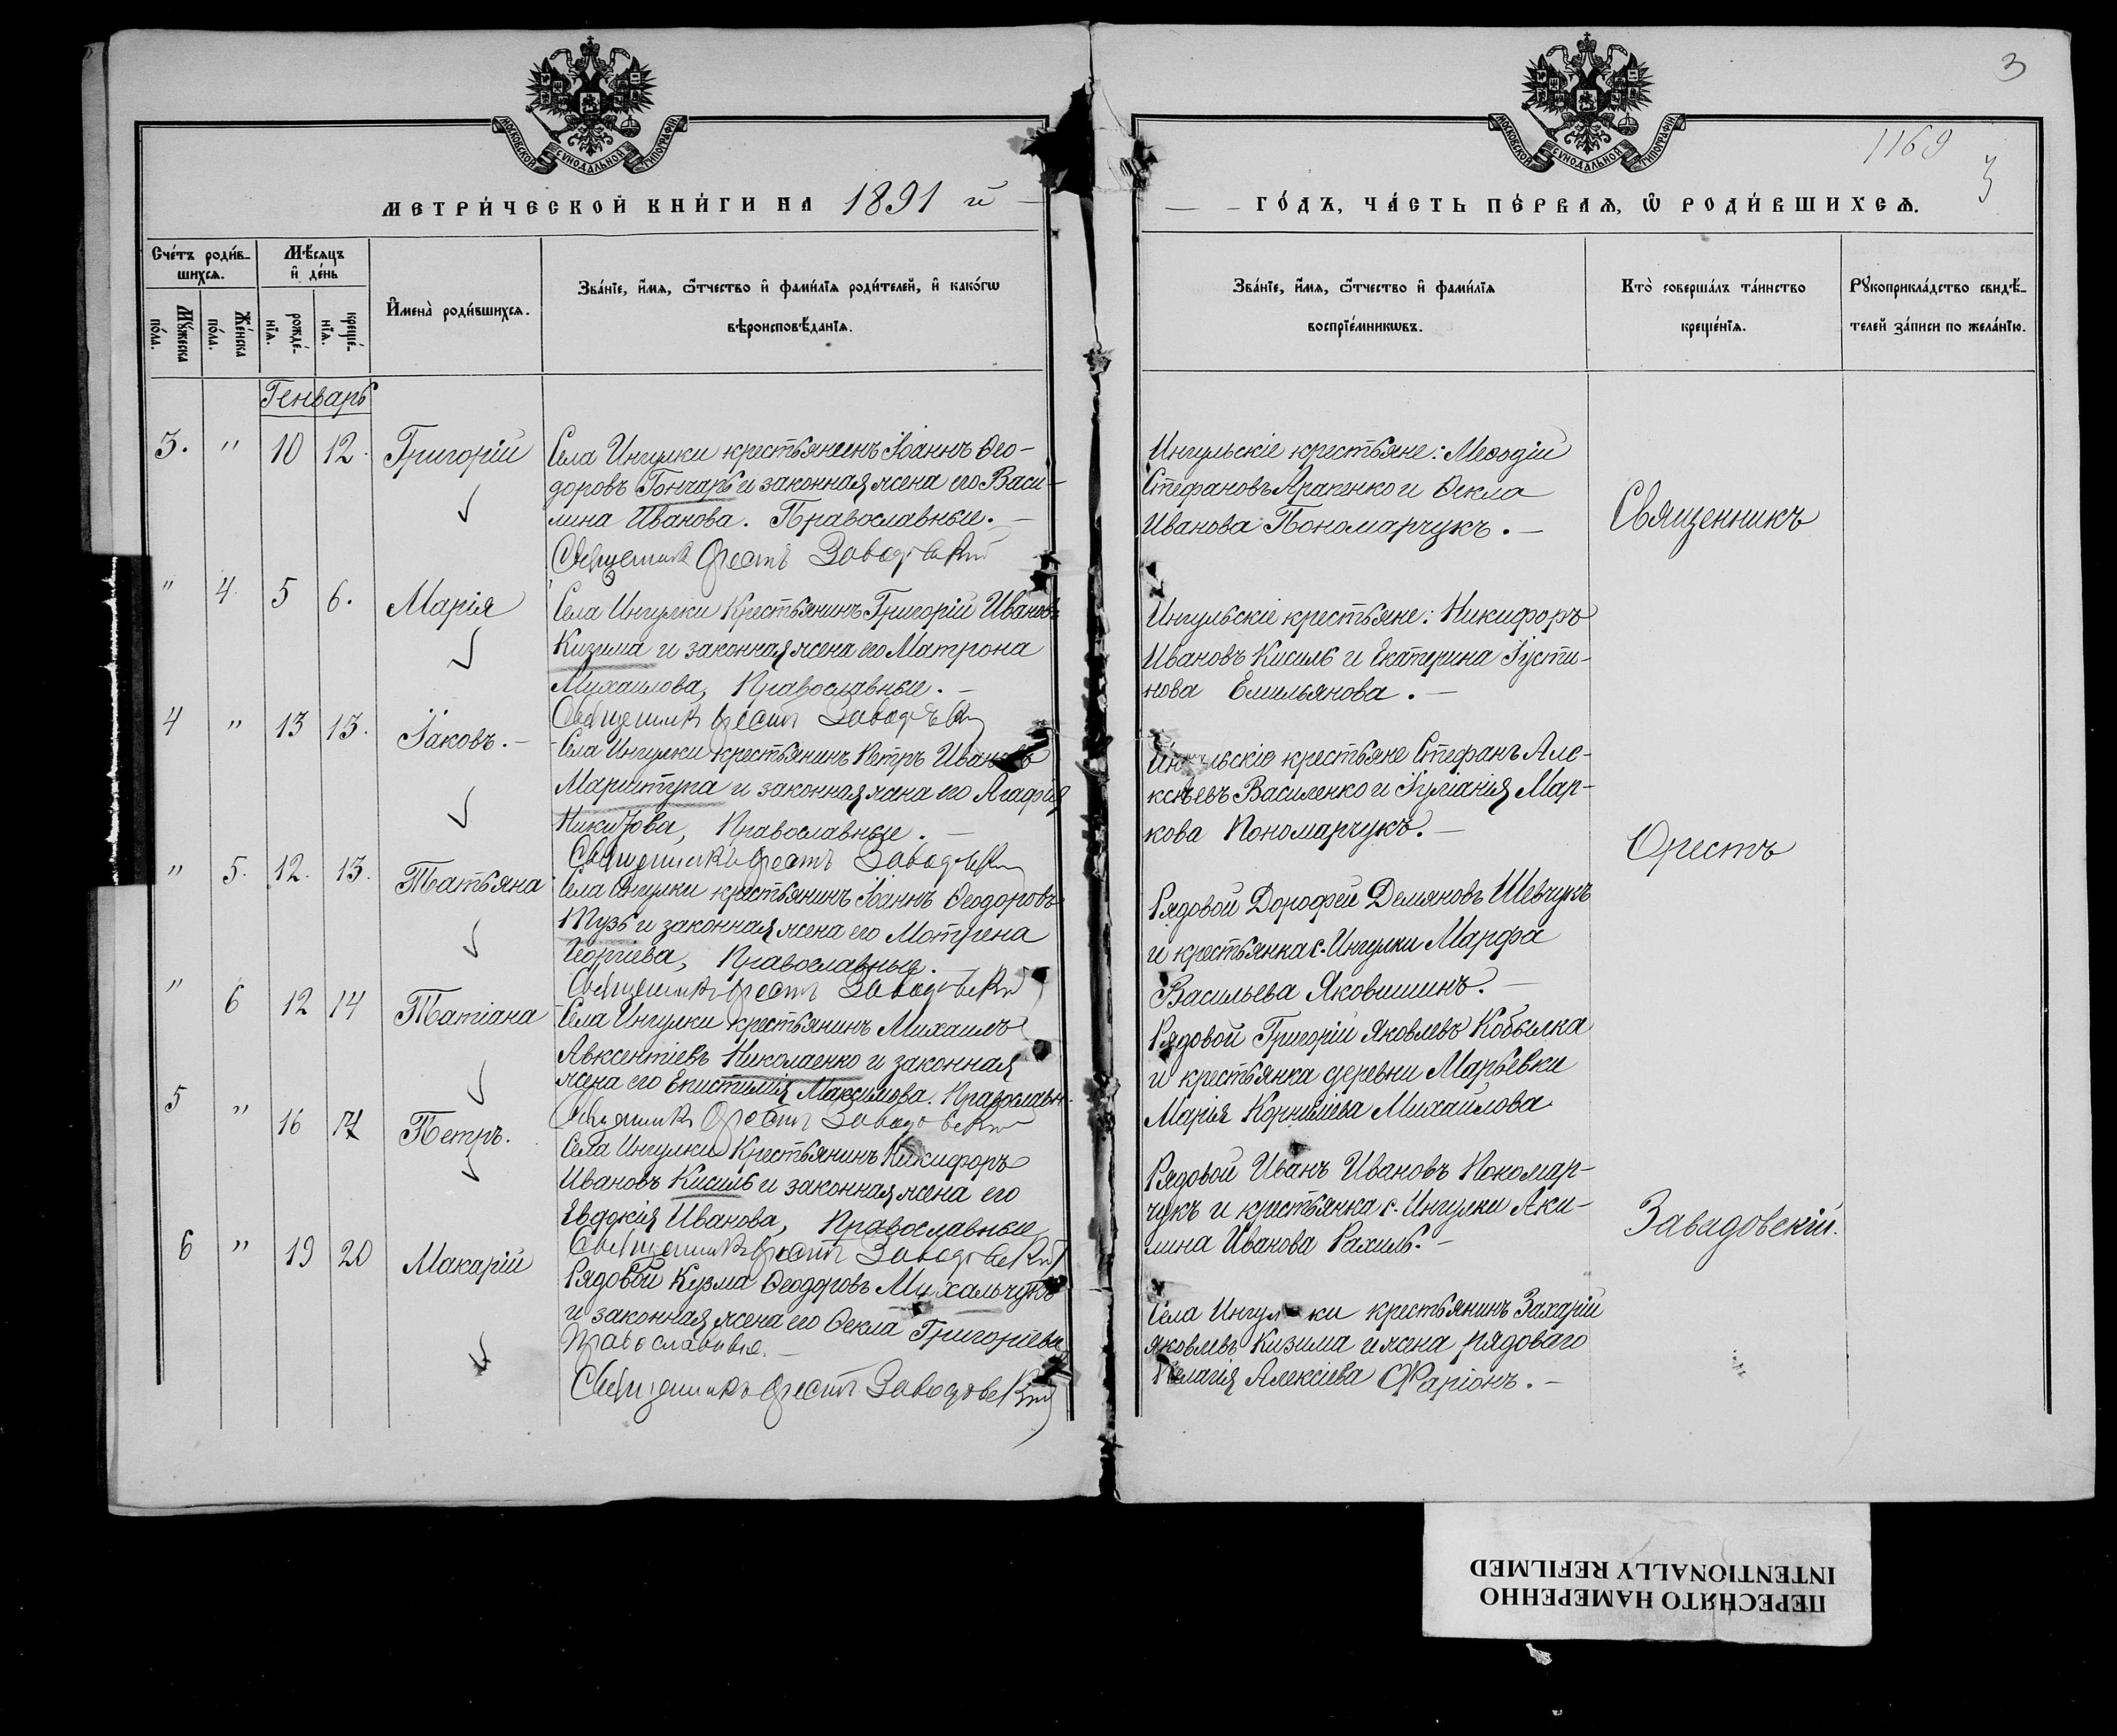 3
1169
3
МОСКОВСКОЙ СѴНОДАЛЬНОЙ ТИПОГРАФІИ
МОСКОВСКОЙ СѴНОДАЛЬНОЙ ТИПОГРАФІИ
МЕТРИ́ЧЕСКОЙ КНИ́ГИ НА 1891 й
ГО́ДЪ, ЧА́СТЬ ПЕ́РВАѦ, Ѡ҆ РОДИ́ВШИХСѦ.
Сче́тъ роди́в-
шихсѧ.
Мꙋ́жеска
по́ла.
Же́нска
по́ла.
Мѣ́сѧцъ
и҆ де́нь
рожде́-
нїѧ.
креще́-
нїѧ.
И҆мена̀ роди́вшихсѧ.
Зва́нїе, и҆́мѧ, ѻ҆́тчество и҆ фами́лїѧ роди́телей, и҆ како́гѡ
вѣроисповѣ́данїѧ.
Зва́нїе, и҆́мѧ, ѻ҆́тчество и҆ фами́лїѧ
воспрїе́мникѡвъ.
Кто̀ соверша́лъ та́инство
креще́нїѧ.
Рꙋкоприкла́дство свидѣ́-
телей за́писи по жела́нїю.
Генварь
3. " 10 12. Григорій
Села Ингулки крестьянинъ Іоаннъ Ѳео-
доровъ Гончарь и законная жена его Васи-
лина Иванова. Православные.
Священникъ Орестъ Завадовскій
Ингульскіе крестьяне: Меѳодій
Стефановъ Аракенко и Ѳекла
Иванова Пономарчукъ.
" 4. 5 6. Марія
Села Ингулки Крестьянинъ Григорій Ивановъ
Кизима и законная жена его Матрона
Михаилова, Православные.
Священникъ Орестъ Завадовскій
Ингульскіе крестьяне: Никифоръ
Ивановъ Кисиль и Екатерина Іусти-
нова Емильянова.
4 " 13 13. Іаковъ.
Села Ингулки крестьянинъ Петръ Ивановъ
Мариступа и законная жена его Агафія
Никитова, Православные.
Священникъ Орестъ Завадовскій
Ингульскіе крестьяне Стефанъ Але-
ксѣевъ Василенко и Іуліанія Мар-
кова Пономарчукъ.
" 5. 12. 13. Татьяна
Села Ингулки крестьянинъ Іоаннъ Ѳеодоровъ
Тузъ и законная жена его Мотрена
Георгіева, Православные.
Священникъ Орестъ Завадовскій
Рядовой Дорофей Демяновъ Шевчукъ
и крестьянка с. Ингулки Марфа
Васильева Яковишинъ.
" 6 12 14 Татіана
Села Ингулки крестьянинъ Михаилъ
Авксентіевъ Николаенко и законная
жена его Епистимія Максимова. Православн.
Священникъ Орестъ Завадовскій
Рядовой Григорій Яковлевъ Кобылка
и крестьянка деревни Марьевки
Марія Корниліева Михайлова
5 " 16 17 Петръ.
Села Ингулки Крестьянинъ Никифоръ
Ивановъ Кисиль и законная жена его
Евдокія Иванова, Православные
Священникъ Орестъ Завадовскій
Рядовой Иванъ Ивановъ Пономар-
чукъ и крестьянка с. Ингулки Аки-
лина Иванова Рахиль.
6 " 19 20 Макарій
Рядовой Кузма Ѳеодоровъ Михальчукъ
и законная жена его Ѳекла Григоріева
Православные.
Священникъ Орестъ Завадовскій
Села Ингулки крестьянинъ Захарій
Яковлевъ Кизима и жена рядоваго
Пелагія Алексіева Фаріонъ.
Священникъ
Орестъ
Завадовскій.
ПЕРЕСНЯТО НАМЕРЕННО
INTENTIONALLY REFILMED